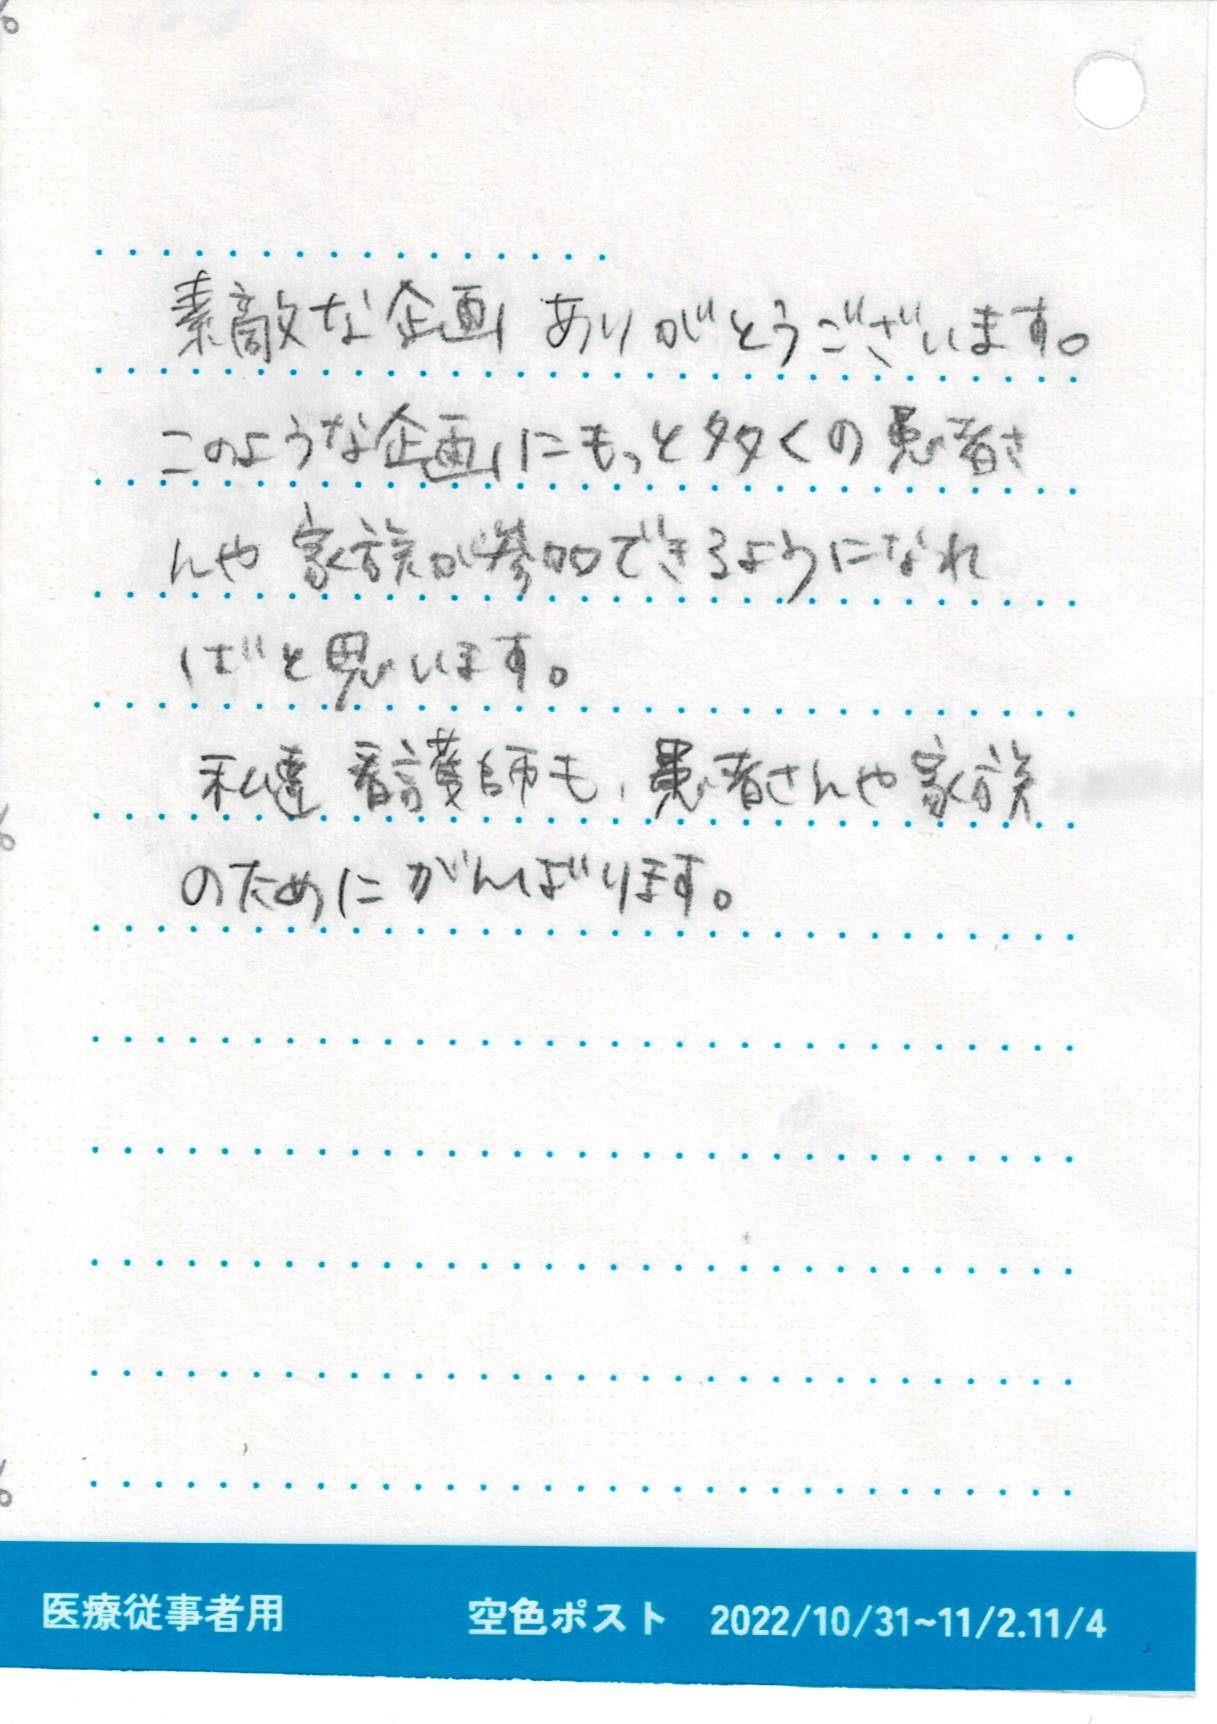 素敵な企画 ありがとうございます。
このような企画にもっと多くの患者さ
んや 家族が参加できるようになれ
ばと思います。
私達 看護師も、患者さんや家族
のために がんばります。
医療従事者用 空色ポスト 2022/10/31~11/2.11/4